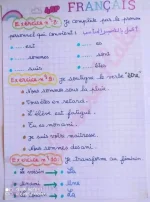 FRANÇAIS
Exercice n°1: Je complète par le pronom
personnel qui convient :
...... est ...... es
...... sommes ...... sont
...... suis ...... êtes
Exercice n°2: Je souligne le verbe "être"
Nous sommes sous la pluie.
Vous êtes en retard.
L'élève est fatigué.
Tu es mon ami.
Je suis votre maîtresse.
Nous sommes des amis.
Je transforme au féminin
Le voisin → La
→ Une
Le cousin → La